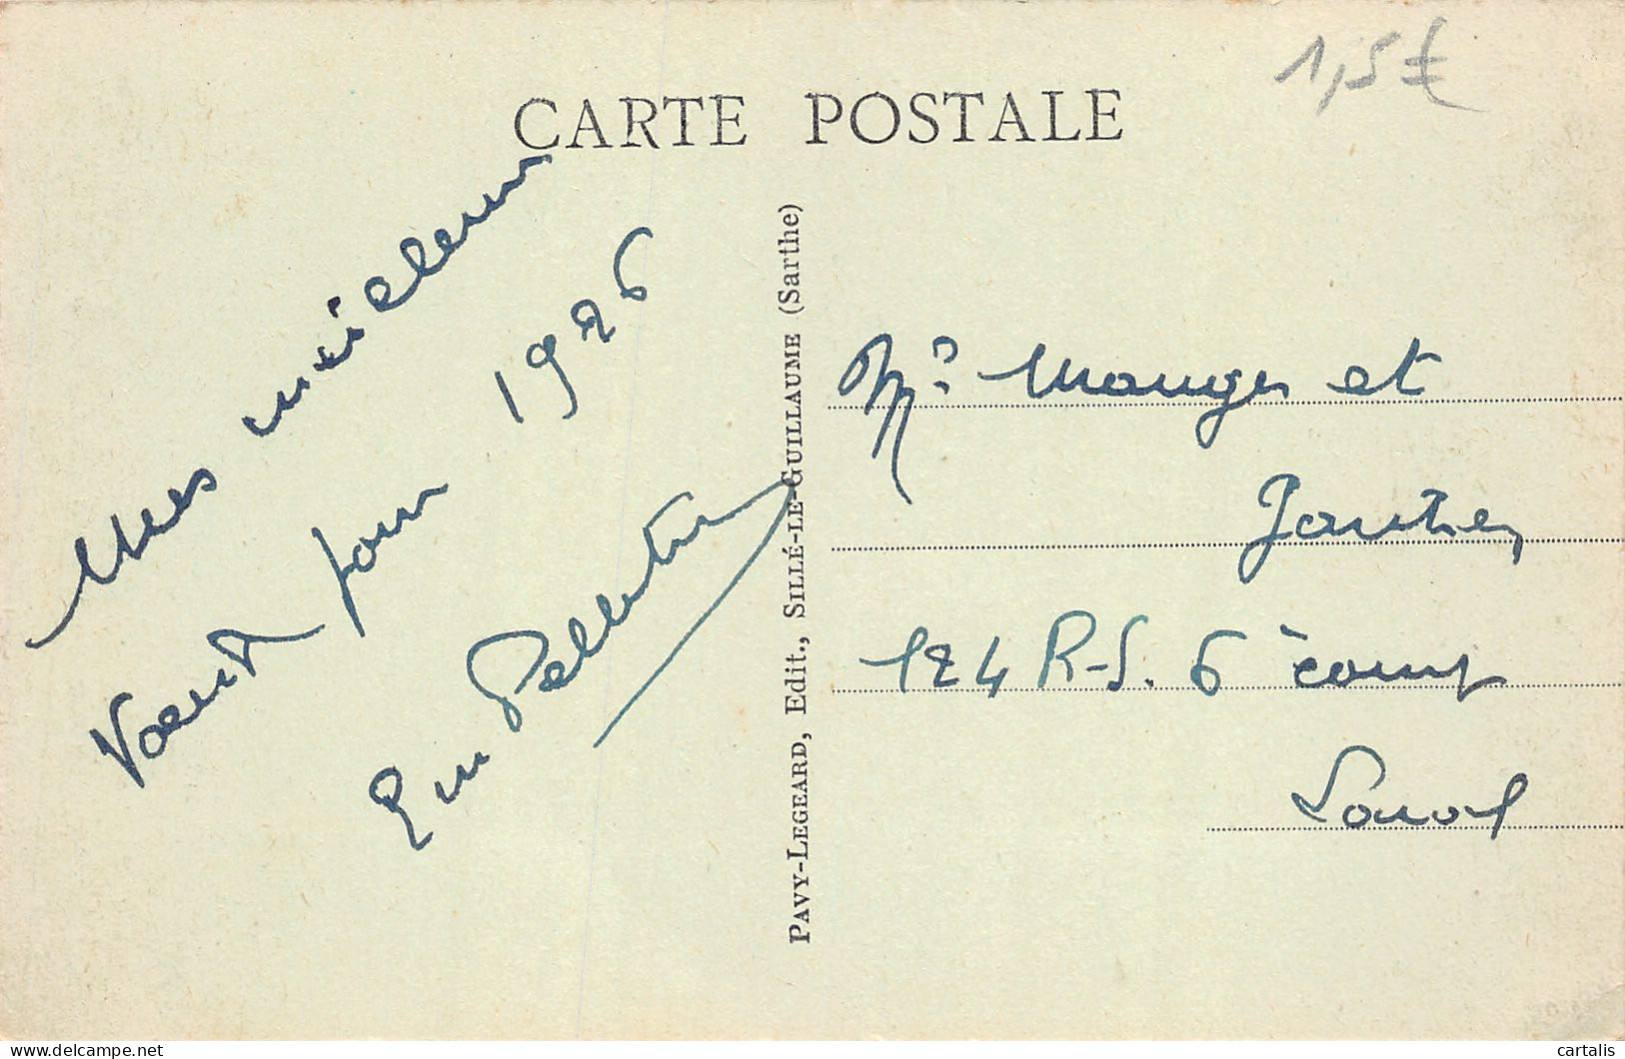 1,5 €
CARTE POSTALE
Mes meilleurs
Voeux pour 1926
Em Pelletier
PAVY-LEGEARD, Edit., SILLÉ-LE-GUILLAUME (Sarthe)
Mrs Manger et
124 R-S. 6è comp
Laval
cartalis